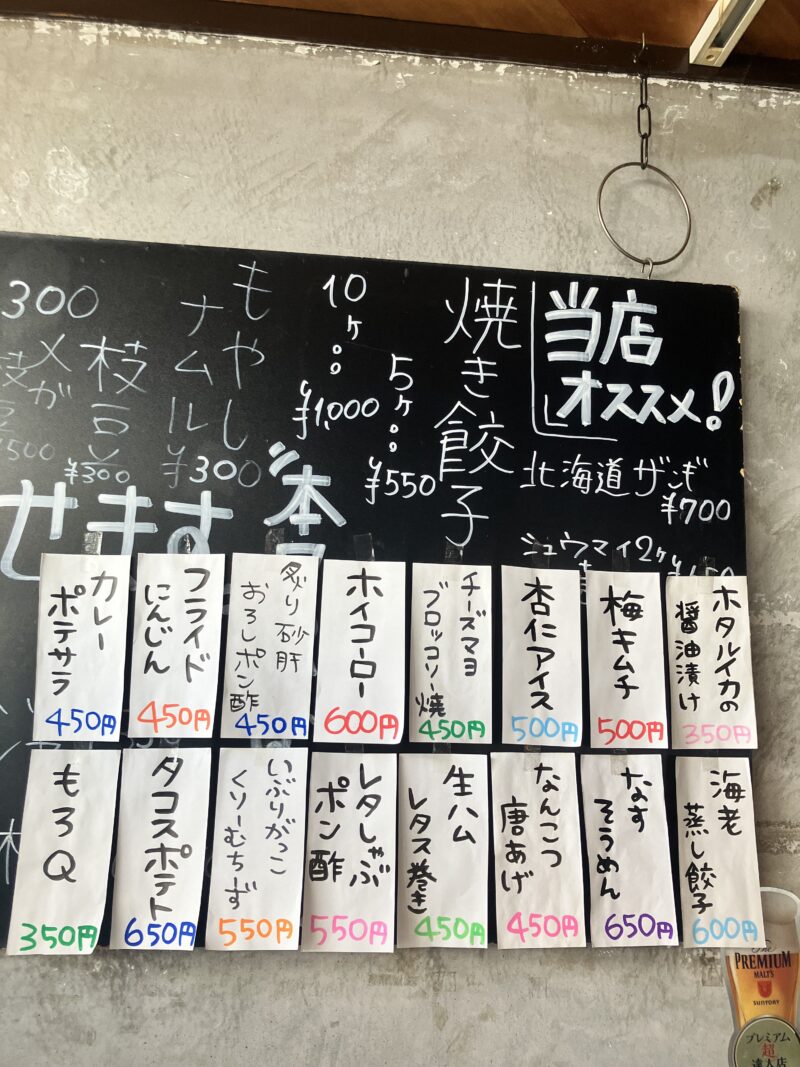 当店
オススメ!
北海道ザンギ
¥700
シュウマイ2ヶ
焼き餃子
5ヶ
¥550
10ヶ
¥1,000
もやし
ナムル
¥300
枝豆
¥300
メガ
¥500
300
せます
ホタルイカの
醤油漬け
350円
梅キムチ
500円
杏仁アイス
500円
チーズマヨ
ブロッコリー焼
450円
ホイコーロー
600円
炙り砂肝
おろしポン酢
450円
フライド
にんじん
450円
カレー
ポテサラ
450円
海老
蒸し餃子
600円
なす
そうめん
650円
なんこつ
唐あげ
450円
生ハム
レタス巻き
450円
レタしゃぶ
ポン酢
550円
いぶりがっこ
くりーむちず
550円
タコスポテト
650円
もろQ
350円
The
PREMIUM
MALT'S
SUNTORY
プレミアム
超
達人店